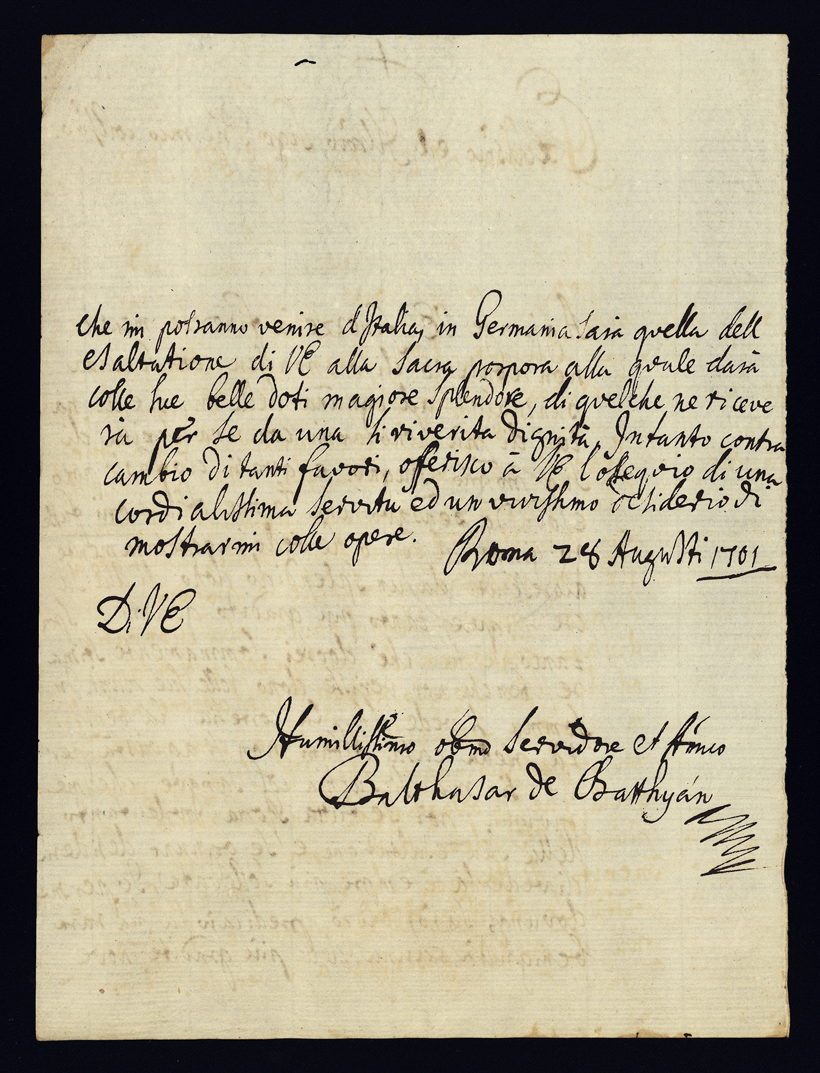 che mi potranno venire d'Italia, in Germania sarà quella dell
esaltatione di VE alla sacra porpora alla quale darà
colle sue belle doti magiore splendore, di quelche ne riceve
rà per se da una si riverita dignità. Intanto contra
cambio di tanti favori, offerisco à VE l'ossequio di una
cordialissima servitù ed un vivissimo desiderio di
mostrarmi colle opere. Roma 28 Augusti 1701
D. VE
Humillissimo obmo servidore et
Balthasar de Batthyán